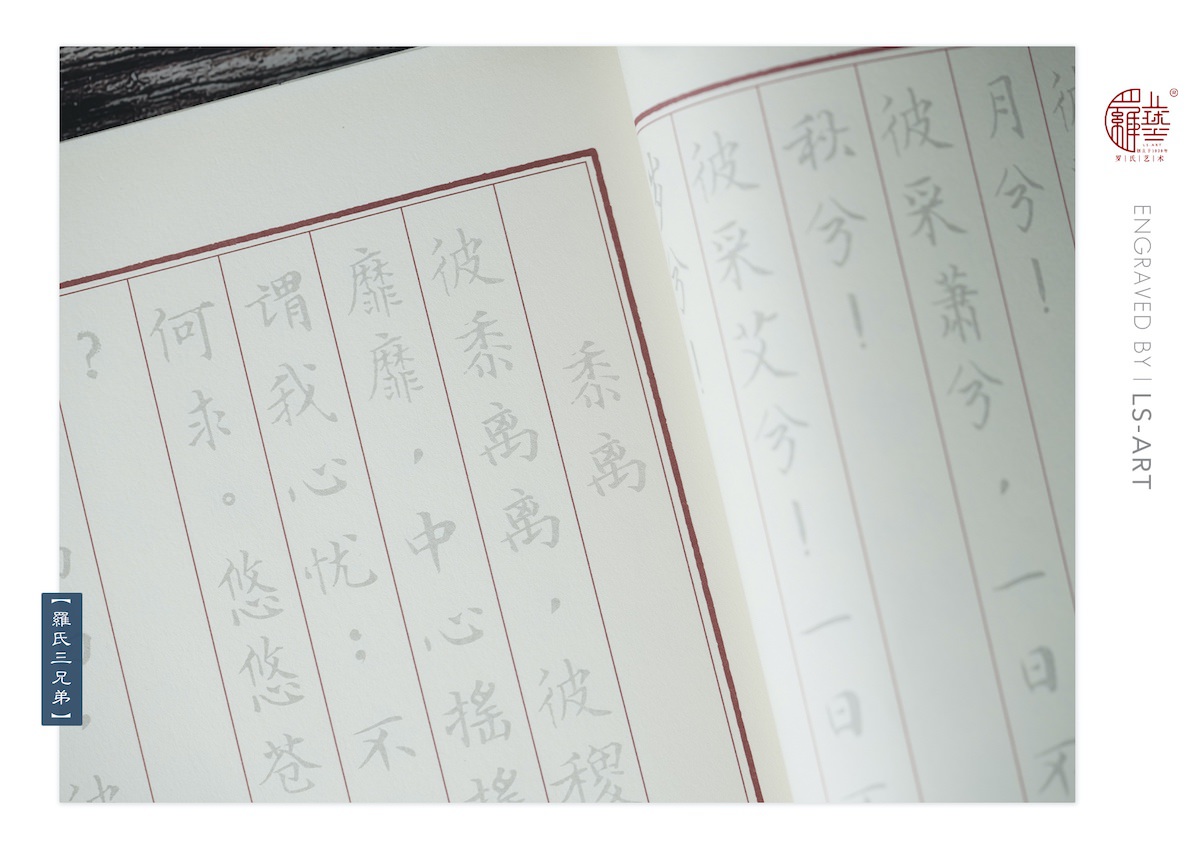 彼
月兮！
彼采蕭兮，一日不
秋兮！
彼采艾兮！一日
兮！
黍离
彼黍离离，彼稷
靡靡，中心搖搖
谓我心忧：不
何求。悠悠苍
？
彼
【羅氏三兄弟】
羅
LS-ART
罗氏艺术
ENGRAVED BY | LS-ART